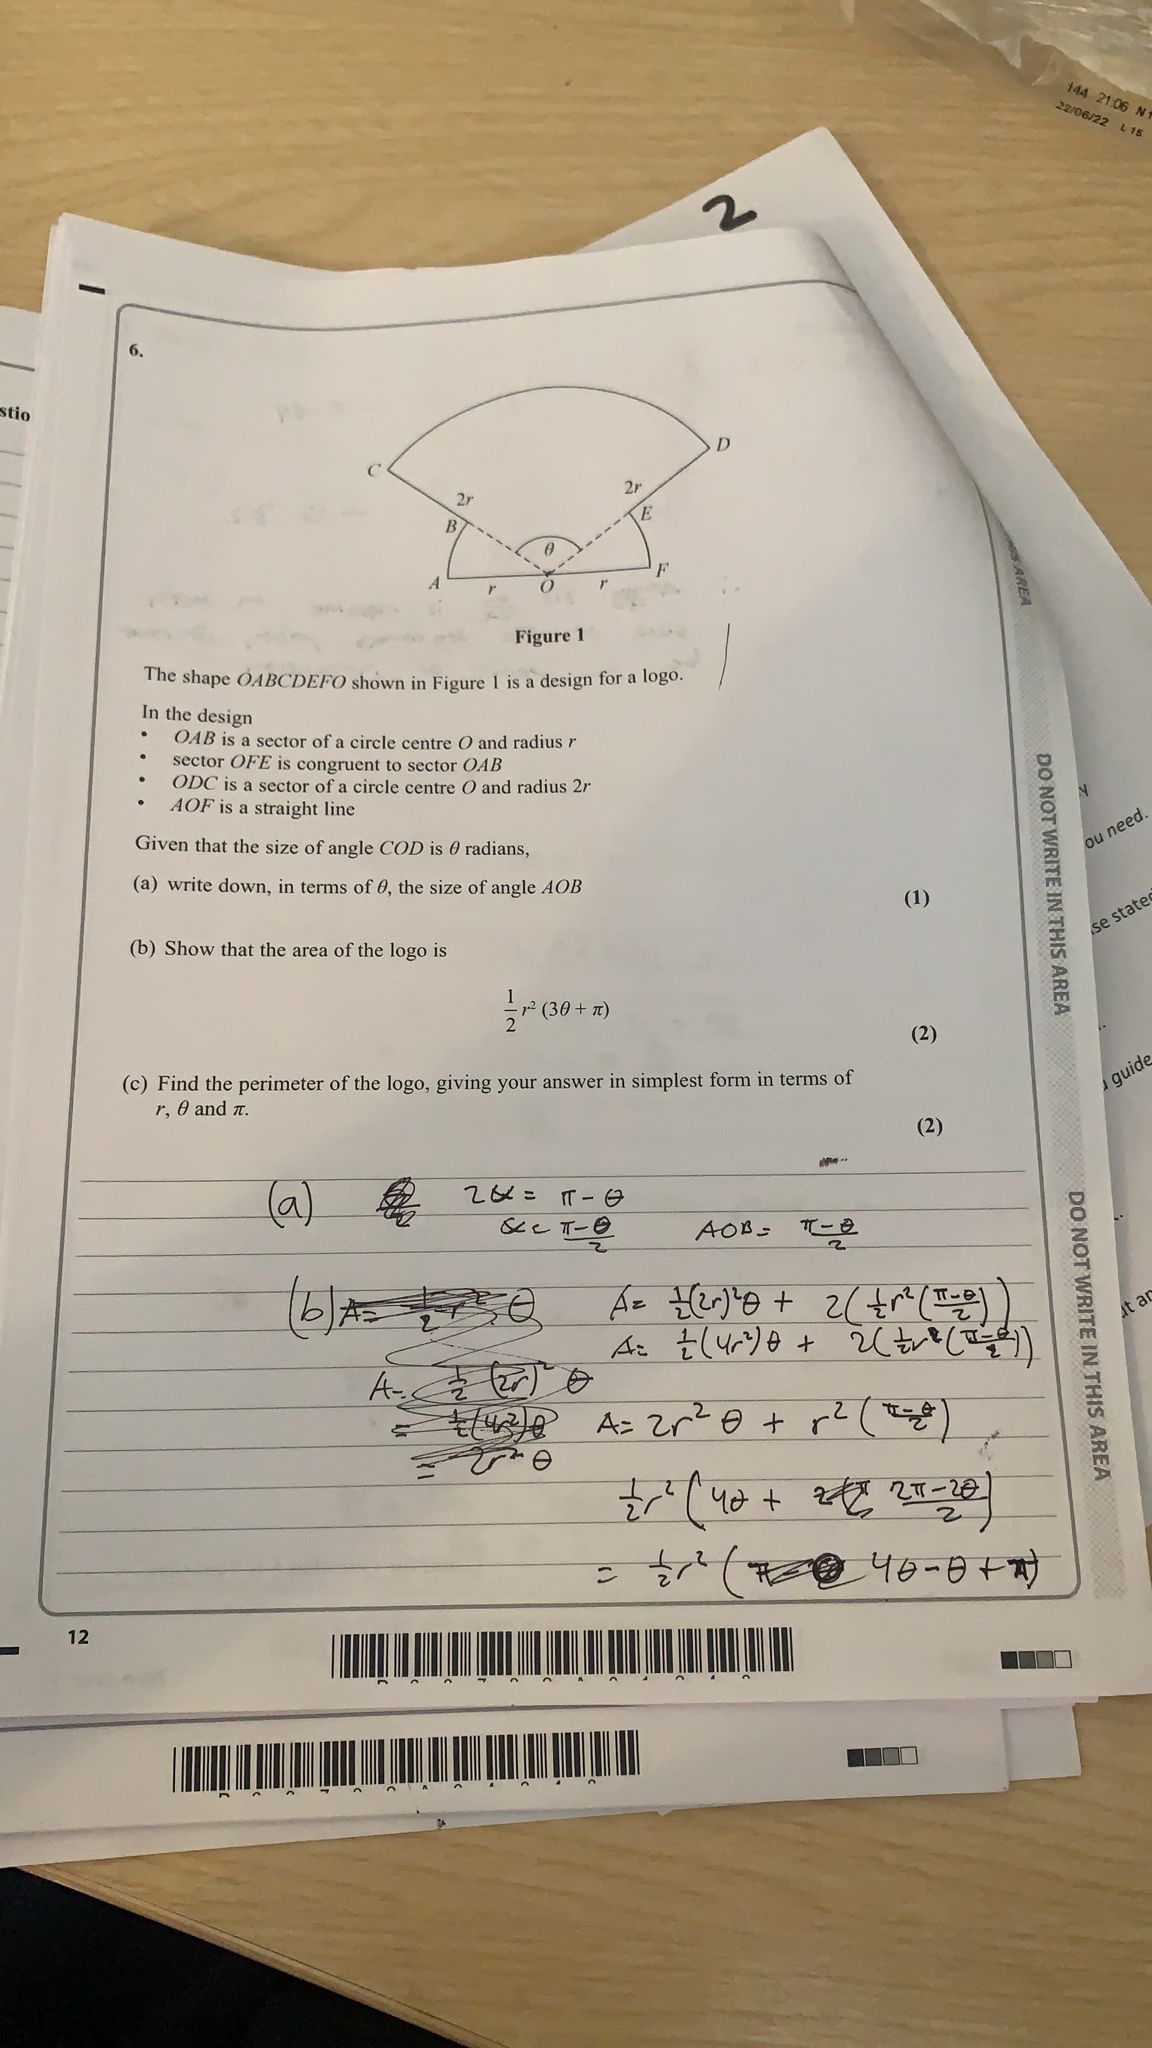 144 21:06 N1
22/06/22 L 15
2
6.
stio
C
D
2r
2r
B
E
θ
A
r
O
r
F
Figure 1
The shape OABCDEFO shown in Figure 1 is a design for a logo.
In the design
• OAB is a sector of a circle centre O and radius r
• sector OFE is congruent to sector OAB
• ODC is a sector of a circle centre O and radius 2r
• AOF is a straight line
Given that the size of angle COD is θ radians,
(a) write down, in terms of θ, the size of angle AOB
(1)
(b) Show that the area of the logo is
1/2 r² (3θ + π)
(2)
(c) Find the perimeter of the logo, giving your answer in simplest form in terms of
r, θ and π.
(2)
(a) 2α = π - θ
α = π-θ/2 AOB = π-θ/2
(b) A= ½(2r)²θ + 2(½r²(π-θ/2))
A= ½(4r²)θ + 2(½r²(π-θ/2))
A= ½(2r)²θ
= ½(4r²)θ A= 2r²θ + r²(π-θ/2)
= 2r²θ
½r²(4θ + 2π-2θ/2)
= ½r²( 4θ-θ+π)
12
AREA
DO NOT WRITE IN THIS AREA
DO NOT WRITE IN THIS AREA
ou need.
se state
guide